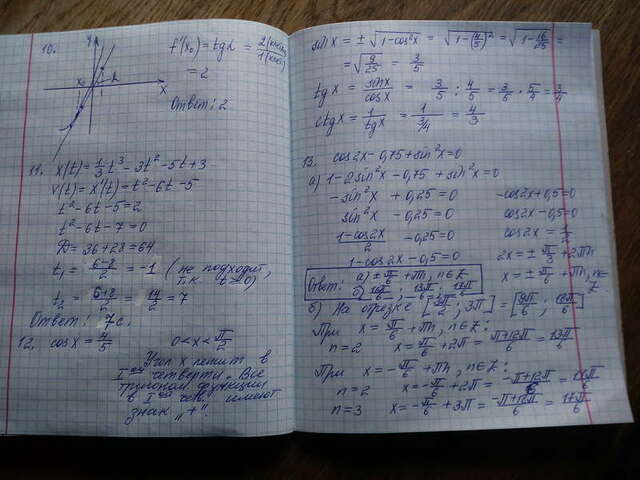 10.
y
x₀
α
x
f'(x₀) = tgα = 2(клет)/1(клет)
= 2
Ответ: 2
11. x(t) = 1/3 t³ - 3t² - 5t + 3
v(t) = x'(t) = t² - 6t - 5
t² - 6t - 5 = 2
t² - 6t - 7 = 0
D = 36 + 28 = 64
t₁ = (6-8)/2 = -1 (не подходит, т.к t ≥ 0)
t₂ = (6+8)/2 = 14/2 = 7
Ответ: 7с.
12. cosx = 4/5 0 < x < π/2
Угол x лежит в
I четверти. Все
тригоном. функции
в I четв. имеют
знак "+".
sinx = ± √(1-cos²x) = √(1-(4/5)²) = √(1-16/25) =
= √(9/25) = 3/5
tgx = sinx/cosx = 3/5 : 4/5 = 3/5 · 5/4 = 3/4
ctgx = 1/tgx = 1/(3/4) = 4/3
13. cos2x - 0,75 + sin²x = 0
а) 1 - 2sin²x - 0,75 + sin²x = 0
-sin²x + 0,25 = 0
sin²x - 0,25 = 0
(1-cos2x)/2 - 0,25 = 0
1 - cos2x - 0,5 = 0
-cos2x + 0,5 = 0
cos2x - 0,5 = 0
cos2x = 1/2
2x = ± π/3 + 2πn
x = ± π/6 + πn, n∈Z.
Ответ: а) ± π/6 + πn, n∈Z
б) 11π/6; 13π/6; 17π/6
б) На отрезке [3π/2; 3π] = [9π/6; 18π/6]
При x = π/6 + πn, n∈Z:
n = 2 x = π/6 + 2π = (π+12π)/6 = 13π/6
При x = -π/6 + πn, n∈Z:
n = 2 x = -π/6 + 2π = (-π+12π)/6 = 11π/6
n = 3 x = -π/6 + 3π = (-π+18π)/6 = 17π/6